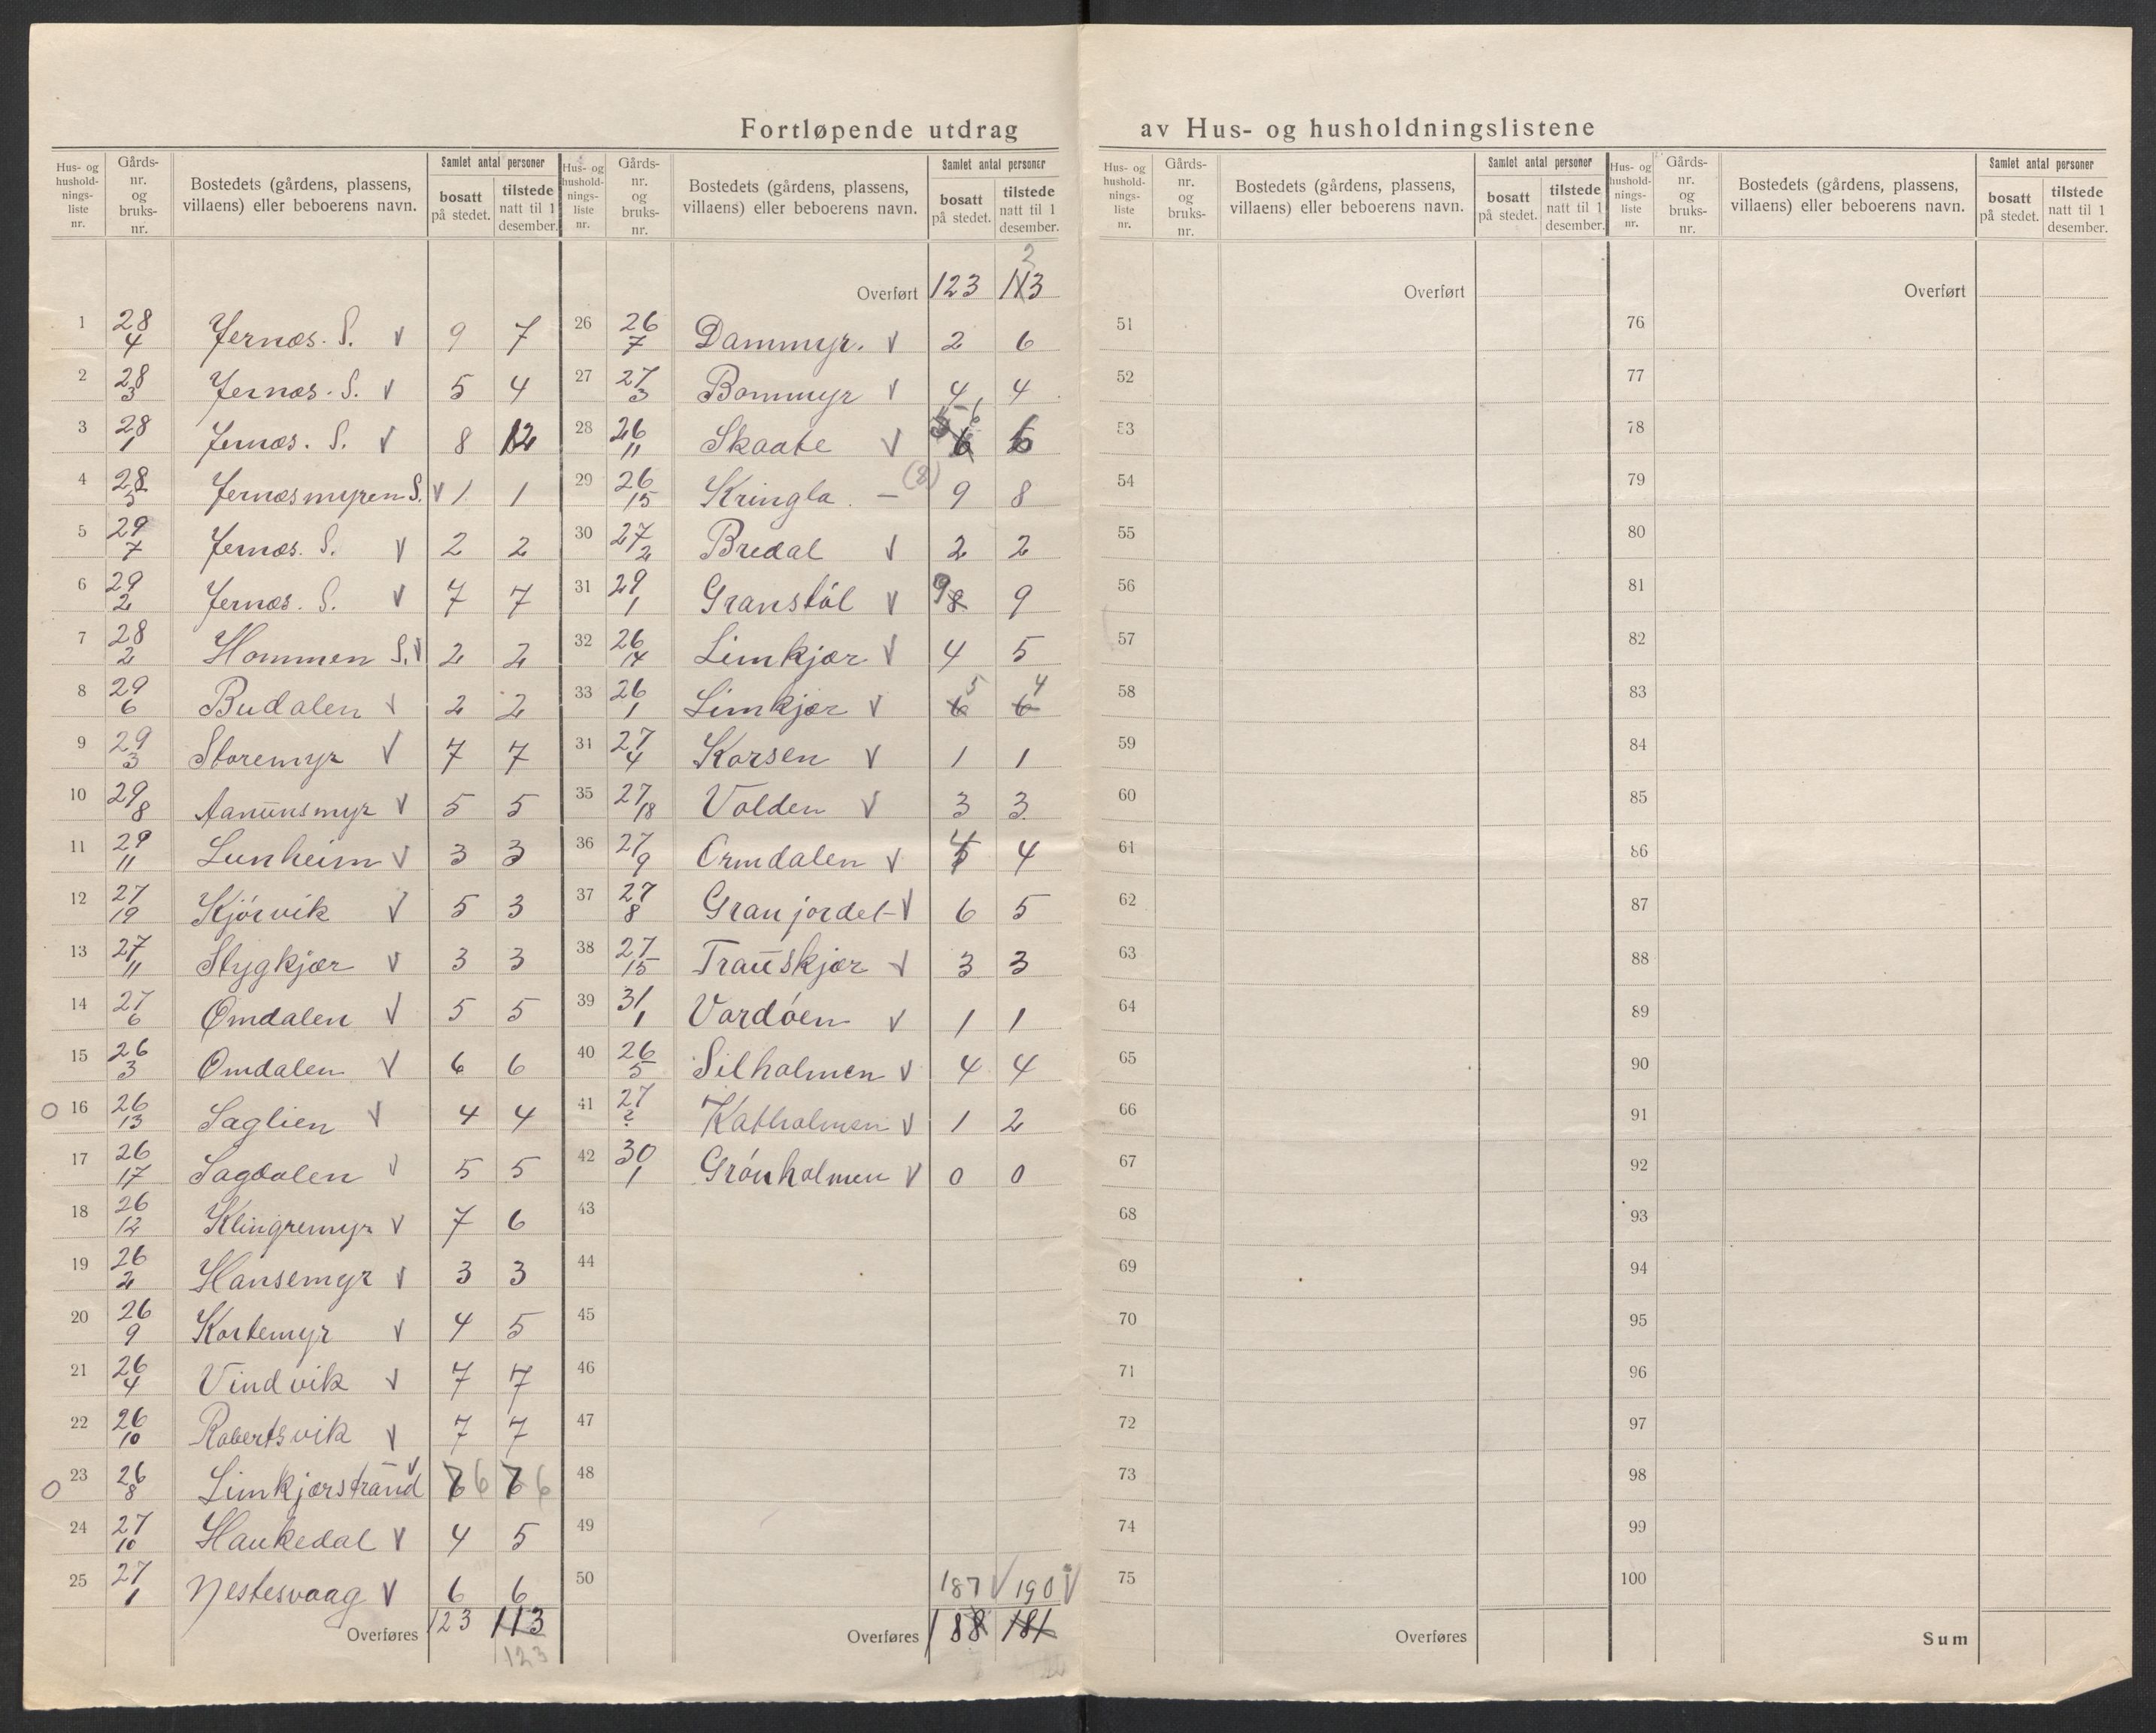 Fortløpende utdrag av Hus- og husholdningslistene
Hus- og husholdnings- liste nr. | Gårds- nr. og bruks- nr. | Bostedets (gårdens, plassens, villaens) eller beboerens navn. | Samlet antal personer | bosatt på stedet. | tilstede natt til 1 desember.
1 28/4 Jernæs. S. v 9 7
2 28/3 Jernæs. S. v 5 4
3 28/1 Jernæs. S. v 8 12
4 28/5 Jernæsmyren S. v 1 1
5 29/7 Jernæs. S. v 2 2
6 29/2 Jernæs. S. v 7 7
7 28/2 Hommen S. v 2 2
8 29/6 Budalen v 2 2
9 29/3 Storemyr v 7 7
10 29/8 Aanunsmyr v 5 5
11 29/11 Lunheim v 3 3
12 27/19 Kjörvik v 5 3
13 27/11 Stygkjær v 3 3
14 27/6 Omdalen v 5 5
15 26/3 Omdalen v 6 6
O 16 26/13 Saglien v 4 4
17 26/17 Sagdalen v 5 5
18 26/12 Klingremyr v 7 6
19 26/2 Hansemyr v 3 3
20 26/9 Kortemyr v 4 5
21 26/4 Vindvik v 7 7
22 26/10 Robertsvik v 7 7
O 23 26/8 Limkjærstrand v 6 6
24 27/10 Haukedal v 4 5
25 27/1 Nestesvaag v 6 6
Overføres 123 113
123
Hus- og husholdnings- liste nr. | Gårds- nr. og bruks- nr. | Bostedets (gårdens, plassens, villaens) eller beboerens navn. | Samlet antal personer | bosatt på stedet. | tilstede natt til 1 desember.
2
Overført 123 113
26 26/7 Dammyr. v 2 6
27 27/3 Bommyr v 4 4
28 26/11 Skaate v 6 6
29 26/15 Kringla. — (2) 9 8
30 27/2 Bredal v 2 2
31 29/1 Granstöl v 9 8 9
32 26/14 Limkjær v 4 5
33 26/1 Limkjær v 6 5 6 4
31 27/4 Korsen v 1 1
35 27/18 Volden v 3 3
36 27/9 Ormdalen v 4 4
37 27/8 Granjordet v 6 5
38 27/15 Trauskjær v 3 3
39 31/1 Vardöen v 1 1
40 26/5 Silholmen v 4 4
41 27/? Katholmen v 1 2
42 30/1 Grönholmen v 0 0
43
44
45
46
47
48
49
50 187 v 190 v
Overføres 188 181
Hus- og husholdnings- liste nr. | Gårds- nr. og bruks- nr. | Bostedets (gårdens, plassens, villaens) eller beboerens navn. | Samlet antal personer | bosatt på stedet. | tilstede natt til 1 desember.
Overført
51
52
53
54
55
56
57
58
59
60
61
62
63
64
65
66
67
68
69
70
71
72
73
74
75
Overføres
Hus- og husholdnings- liste nr. | Gårds- nr. og bruks- nr. | Bostedets (gårdens, plassens, villaens) eller beboerens navn. | Samlet antal personer | bosatt på stedet. | tilstede natt til 1 desember.
Overført
76
77
78
79
80
81
82
83
84
85
86
87
88
89
90
91
92
93
94
95
96
97
98
99
100
Sum